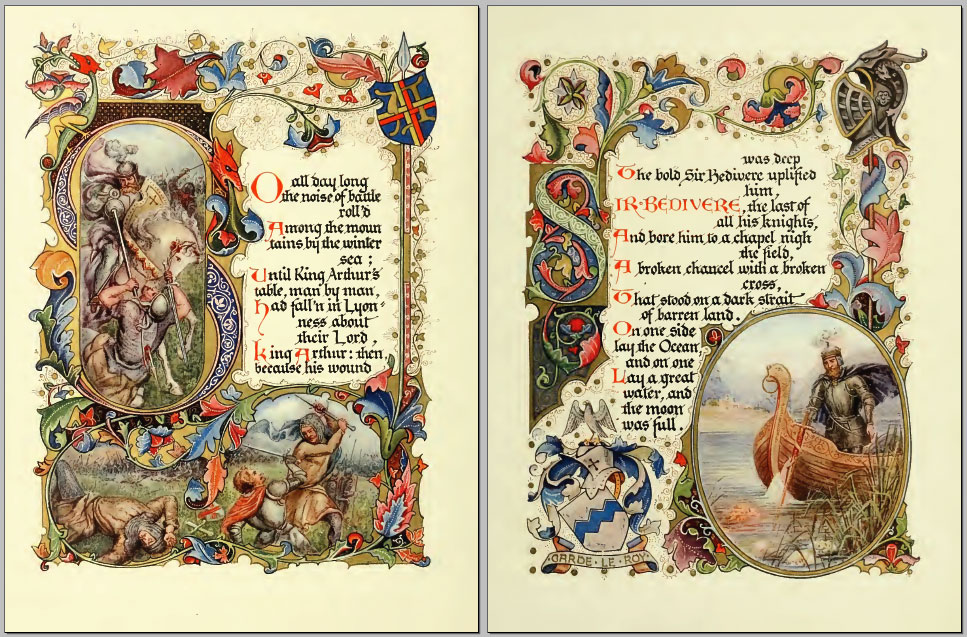 SO all day long
the noise of battle
roll'd
Among the moun
tains by the winter
sea;
Until King Arthur's
table, man by man,
Had fall'n in Lyon=
ness about
their Lord,
King Arthur: then,
because his wound
was deep
The bold Sir Bedivere uplifted
him,
SIR·BEDIVERE, the last of
all his knights,
And bore him to a chapel nigh
the field,
A broken chancel with a broken
cross,
That stood on a dark strait
of barren land.
On one side
lay the Ocean,
and on one
Lay a great
water, and
the moon
was full.
GARDE·LE·ROY